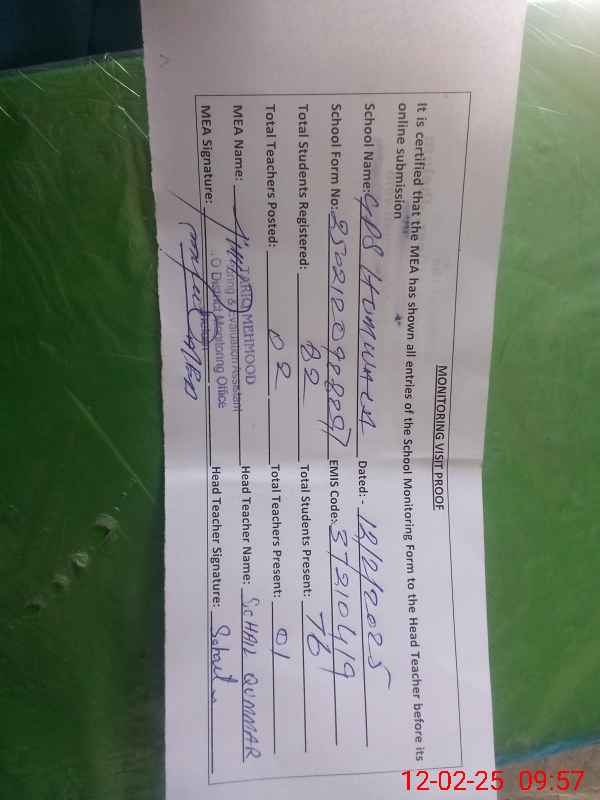 MONITORING VISIT PROOF
It is certified that the MEA has shown all entries of the School Monitoring Form to the Head Teacher before its
online submission
School Name: GPS HUMWALA Dated:- 12/2/2025
School Form No: EMIS Code: 37210419
Total Students Registered: 82 Total Students Present: 76
Total Teachers Posted: 02 Total Teachers Present: 01
MEA Name: Head Teacher Name: SOHAIL QUMMAR
TARIQ MEHMOOD
Monitoring & Evaluation Assistant
O District Monitoring Office
MEA Signature: Head Teacher Signature: Sohail
12-02-25 09:57